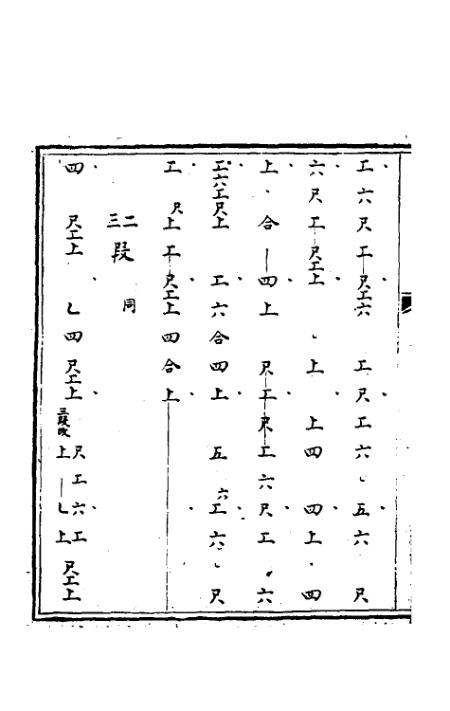 工六尺工尺工六工尺工六五六尺
六尺工尺工上上上四四上四
上合四上尺工尺工六尺工六
工六工尺上工六合四上五六工六尺
工尺上工尺工上四合上
二三段同
四尺工上乚四尺工上三段改尺工六工上乚上尺工上